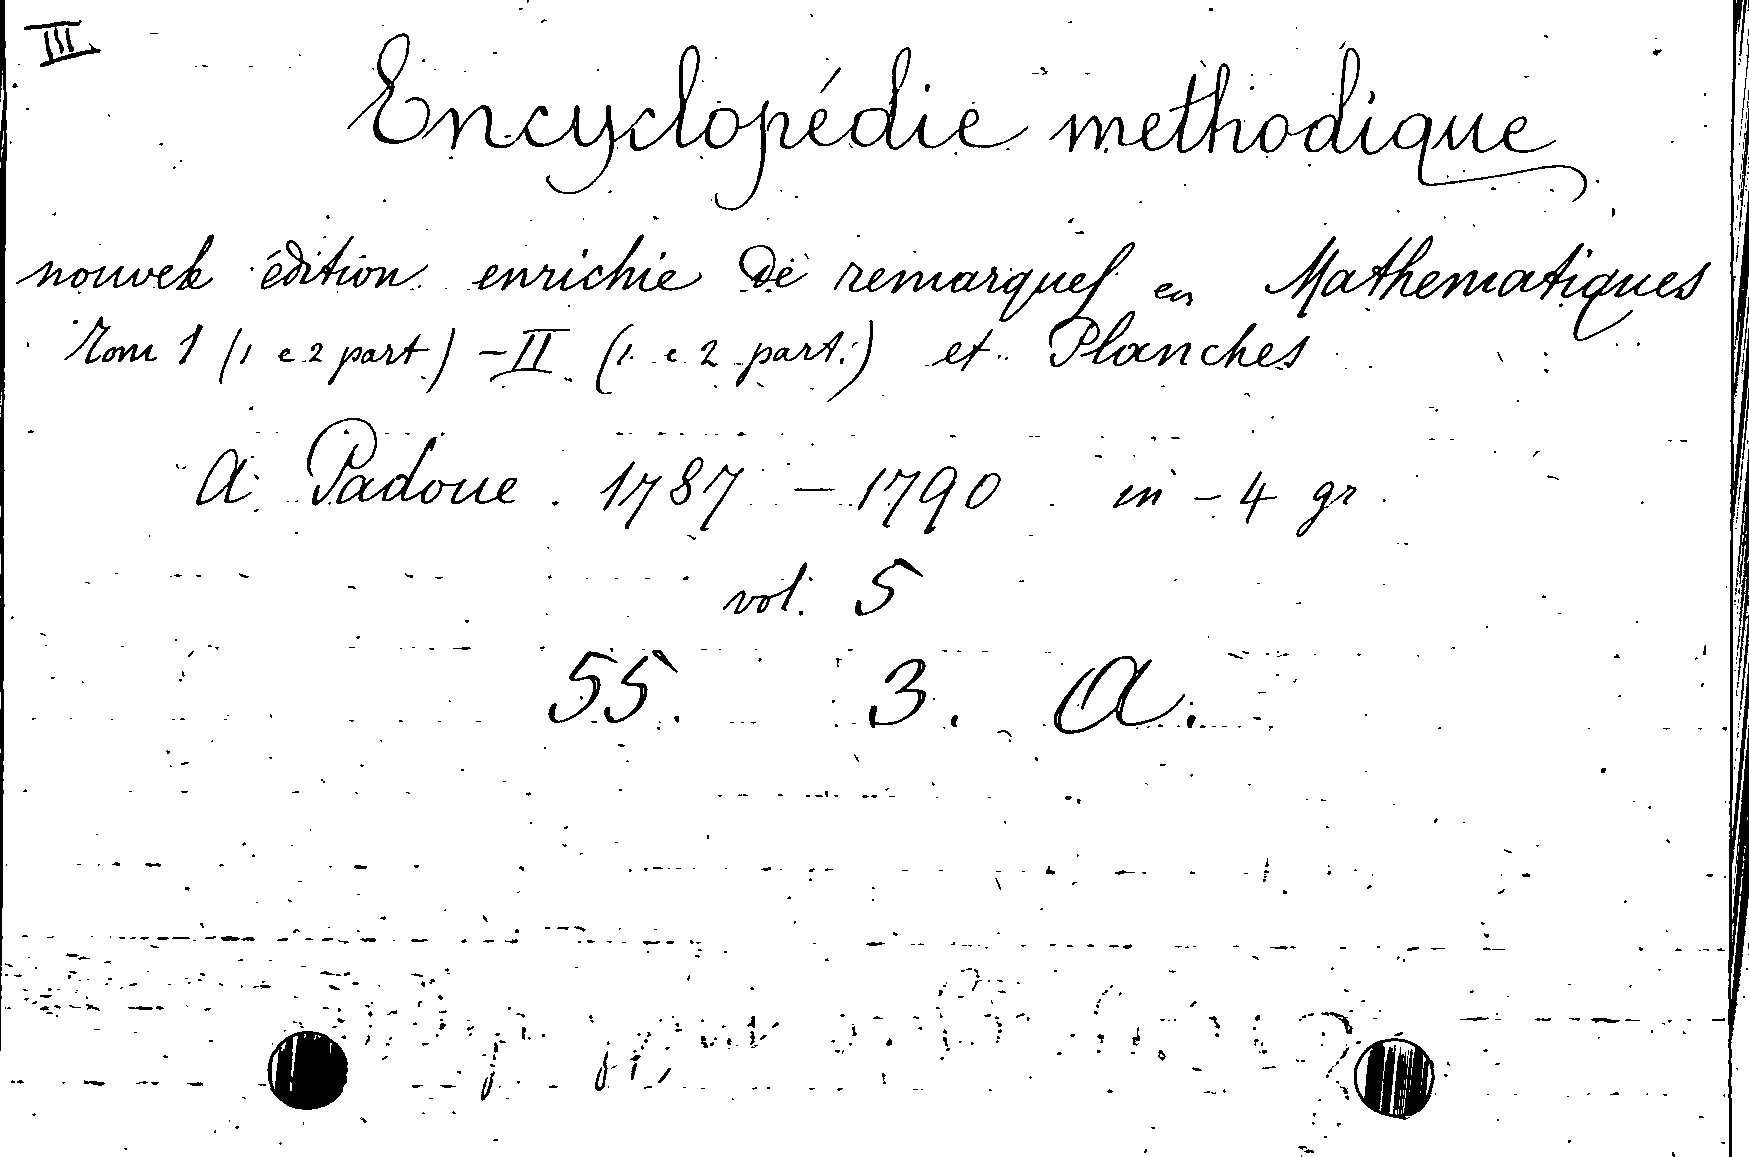 III
Encyclopédie methodique
nouvele édition enrichie de remarques en Mathematiques
Tom 1 (1 e 2 part.) - II (1 e 2 part.) et Planches
A Padoue 1787 - 1790 in - 4 gr
vol. 5
55. 3. A.